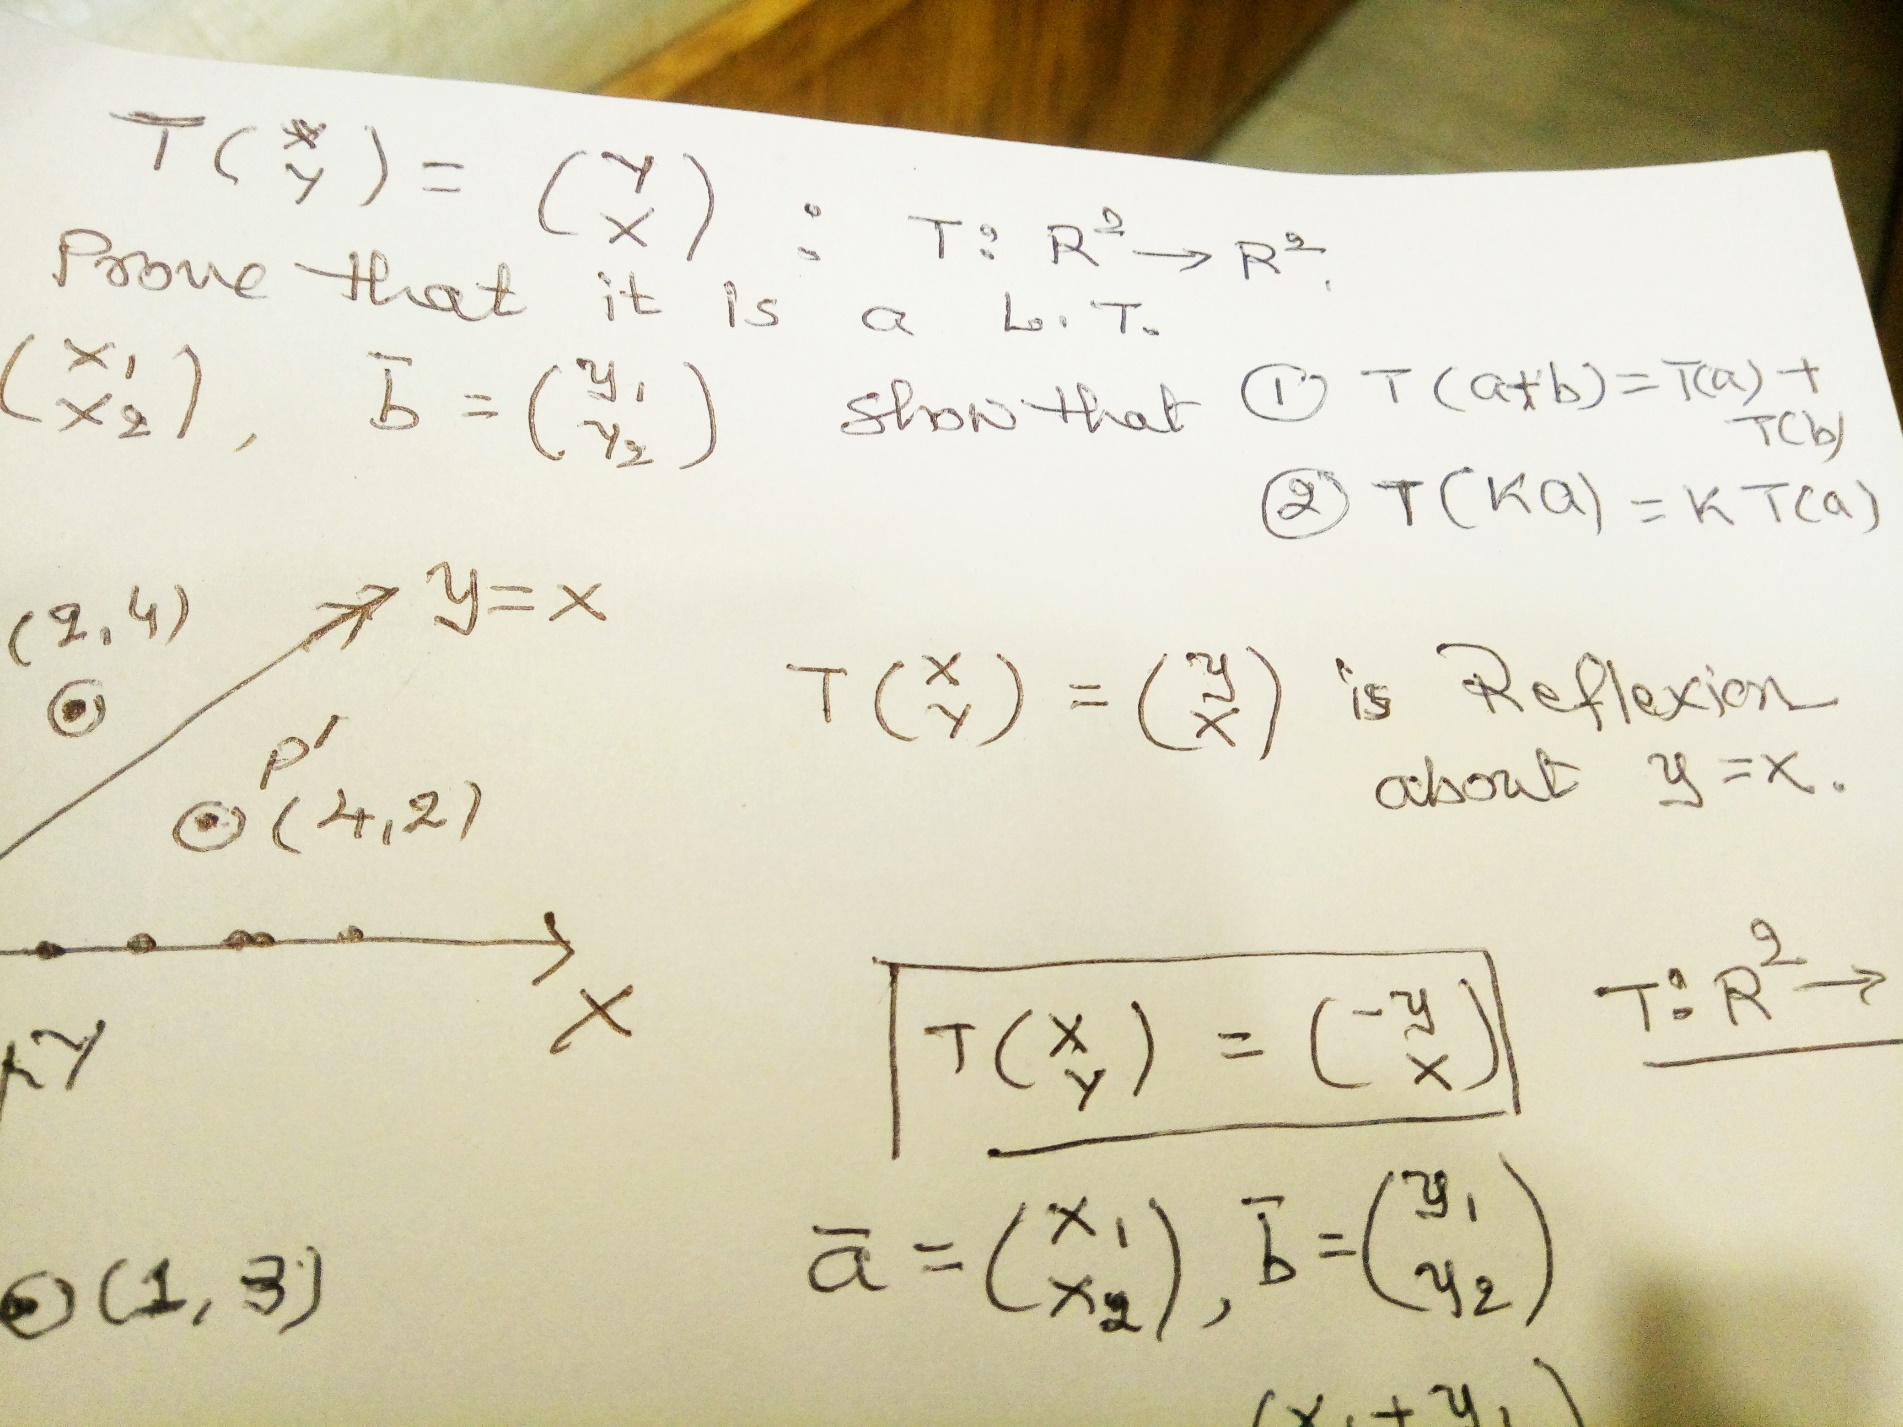 T(x y) = (y x) : T: R² → R².
Prove that it is a L.T.
(x₁ x₂), b̄ = (y₁ y₂) show that ① T(a+b) = T(a) +
T(b)
② T(Ka) = K T(a)
(2,4)
y=x
T(x y) = (y x) is Reflexion
about y=x.
P'
(4,2)
X
T(x y) = (-y x)
T: R² →
Y
ā = (x₁ x₂), b̄ = (y₁ y₂)
(1, 3)
(x₁ + y₁)